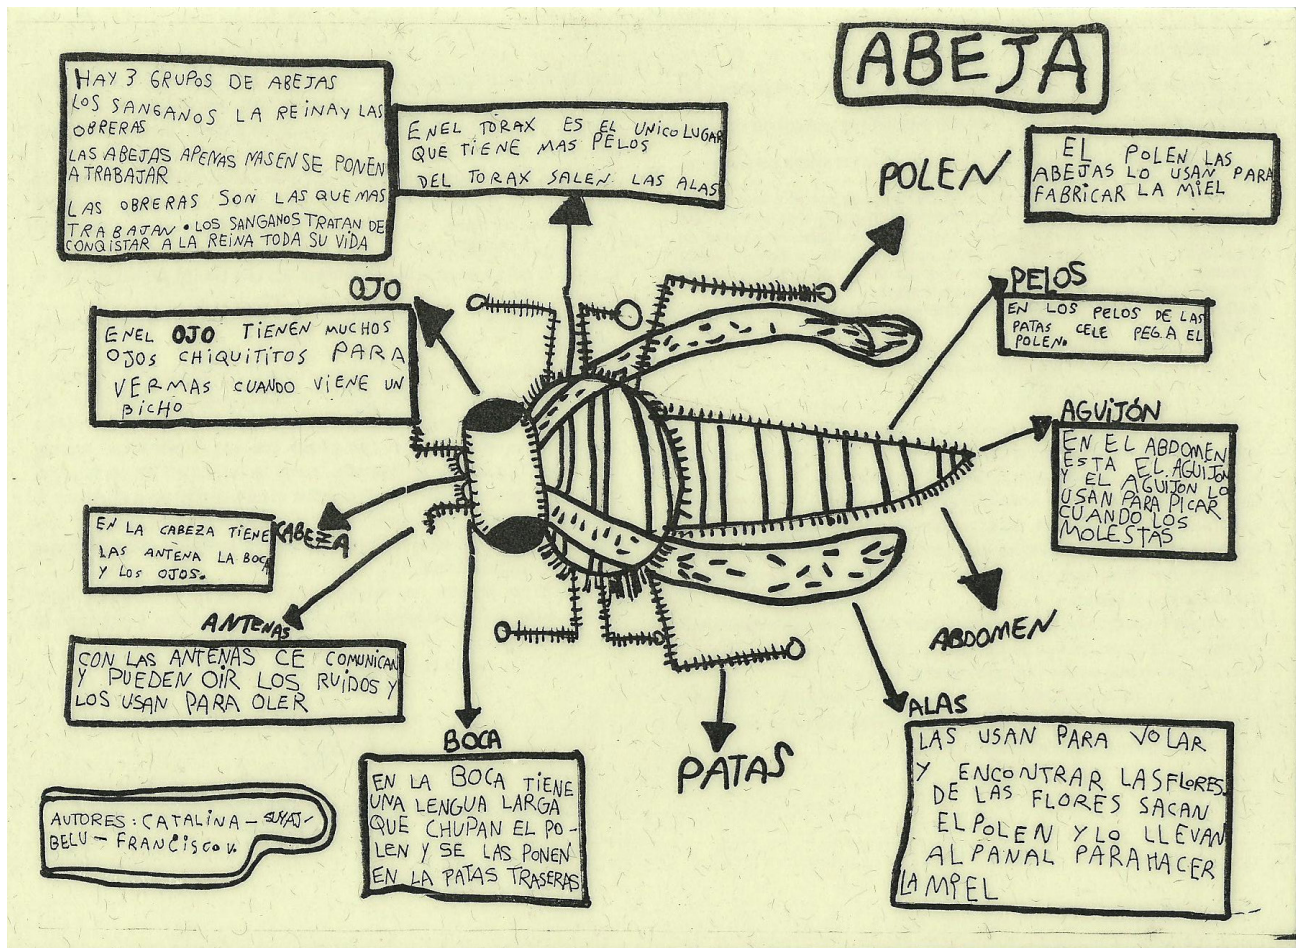 ABEJA
HAY 3 GRUPOS DE ABEJAS
LOS SANGANOS LA REINA Y LAS
OBRERAS
LAS ABEJAS APENAS NASEN SE PONEN
A TRABAJAR
LAS OBRERAS SON LAS QUE MAS
TRABAJAN. LOS SANGANOS TRATAN DE
CONQISTAR A LA REINA TODA SU VIDA
EN EL TORAX ES EL UNICO LUGAR
QUE TIENE MAS PELOS
DEL TORAX SALEN LAS ALAS
POLEN
EL POLEN LAS
ABEJAS LO USAN PARA
FABRICAR LA MIEL
OJO
EN EL OJO TIENEN MUCHOS
OJOS CHIQUITITOS PARA
VER MAS CUANDO VIENE UN
BICHO
PELOS
EN LOS PELOS DE LAS
PATAS CELE PEGA EL
POLEN.
AGUIJÓN
EN EL ABDOMEN
ESTA EL AGUIJON
Y EL AGUIJON LO
USAN PARA PICAR
CUANDO LOS
MOLESTAS
CABEZA
EN LA CABEZA TIENE
LAS ANTENA LA BOCA
Y LOS OJOS.
ANTENAS
CON LAS ANTENAS CE COMUNICAN
Y PUEDEN OIR LOS RUIDOS Y
LOS USAN PARA OLER
ABDOMEN
BOCA
EN LA BOCA TIENE
UNA LENGUA LARGA
QUE CHUPAN EL PO-
LEN Y SE LAS PONEN
EN LA PATAS TRASERAS
PATAS
ALAS
LAS USAN PARA VOLAR
Y ENCONTRAR LAS FLORES.
DE LAS FLORES SACAN
EL POLEN Y LO LLEVAN
AL PANAL PARA HACER
LA MIEL
AUTORES: CATALINA -
BELU - FRANCISCO V.